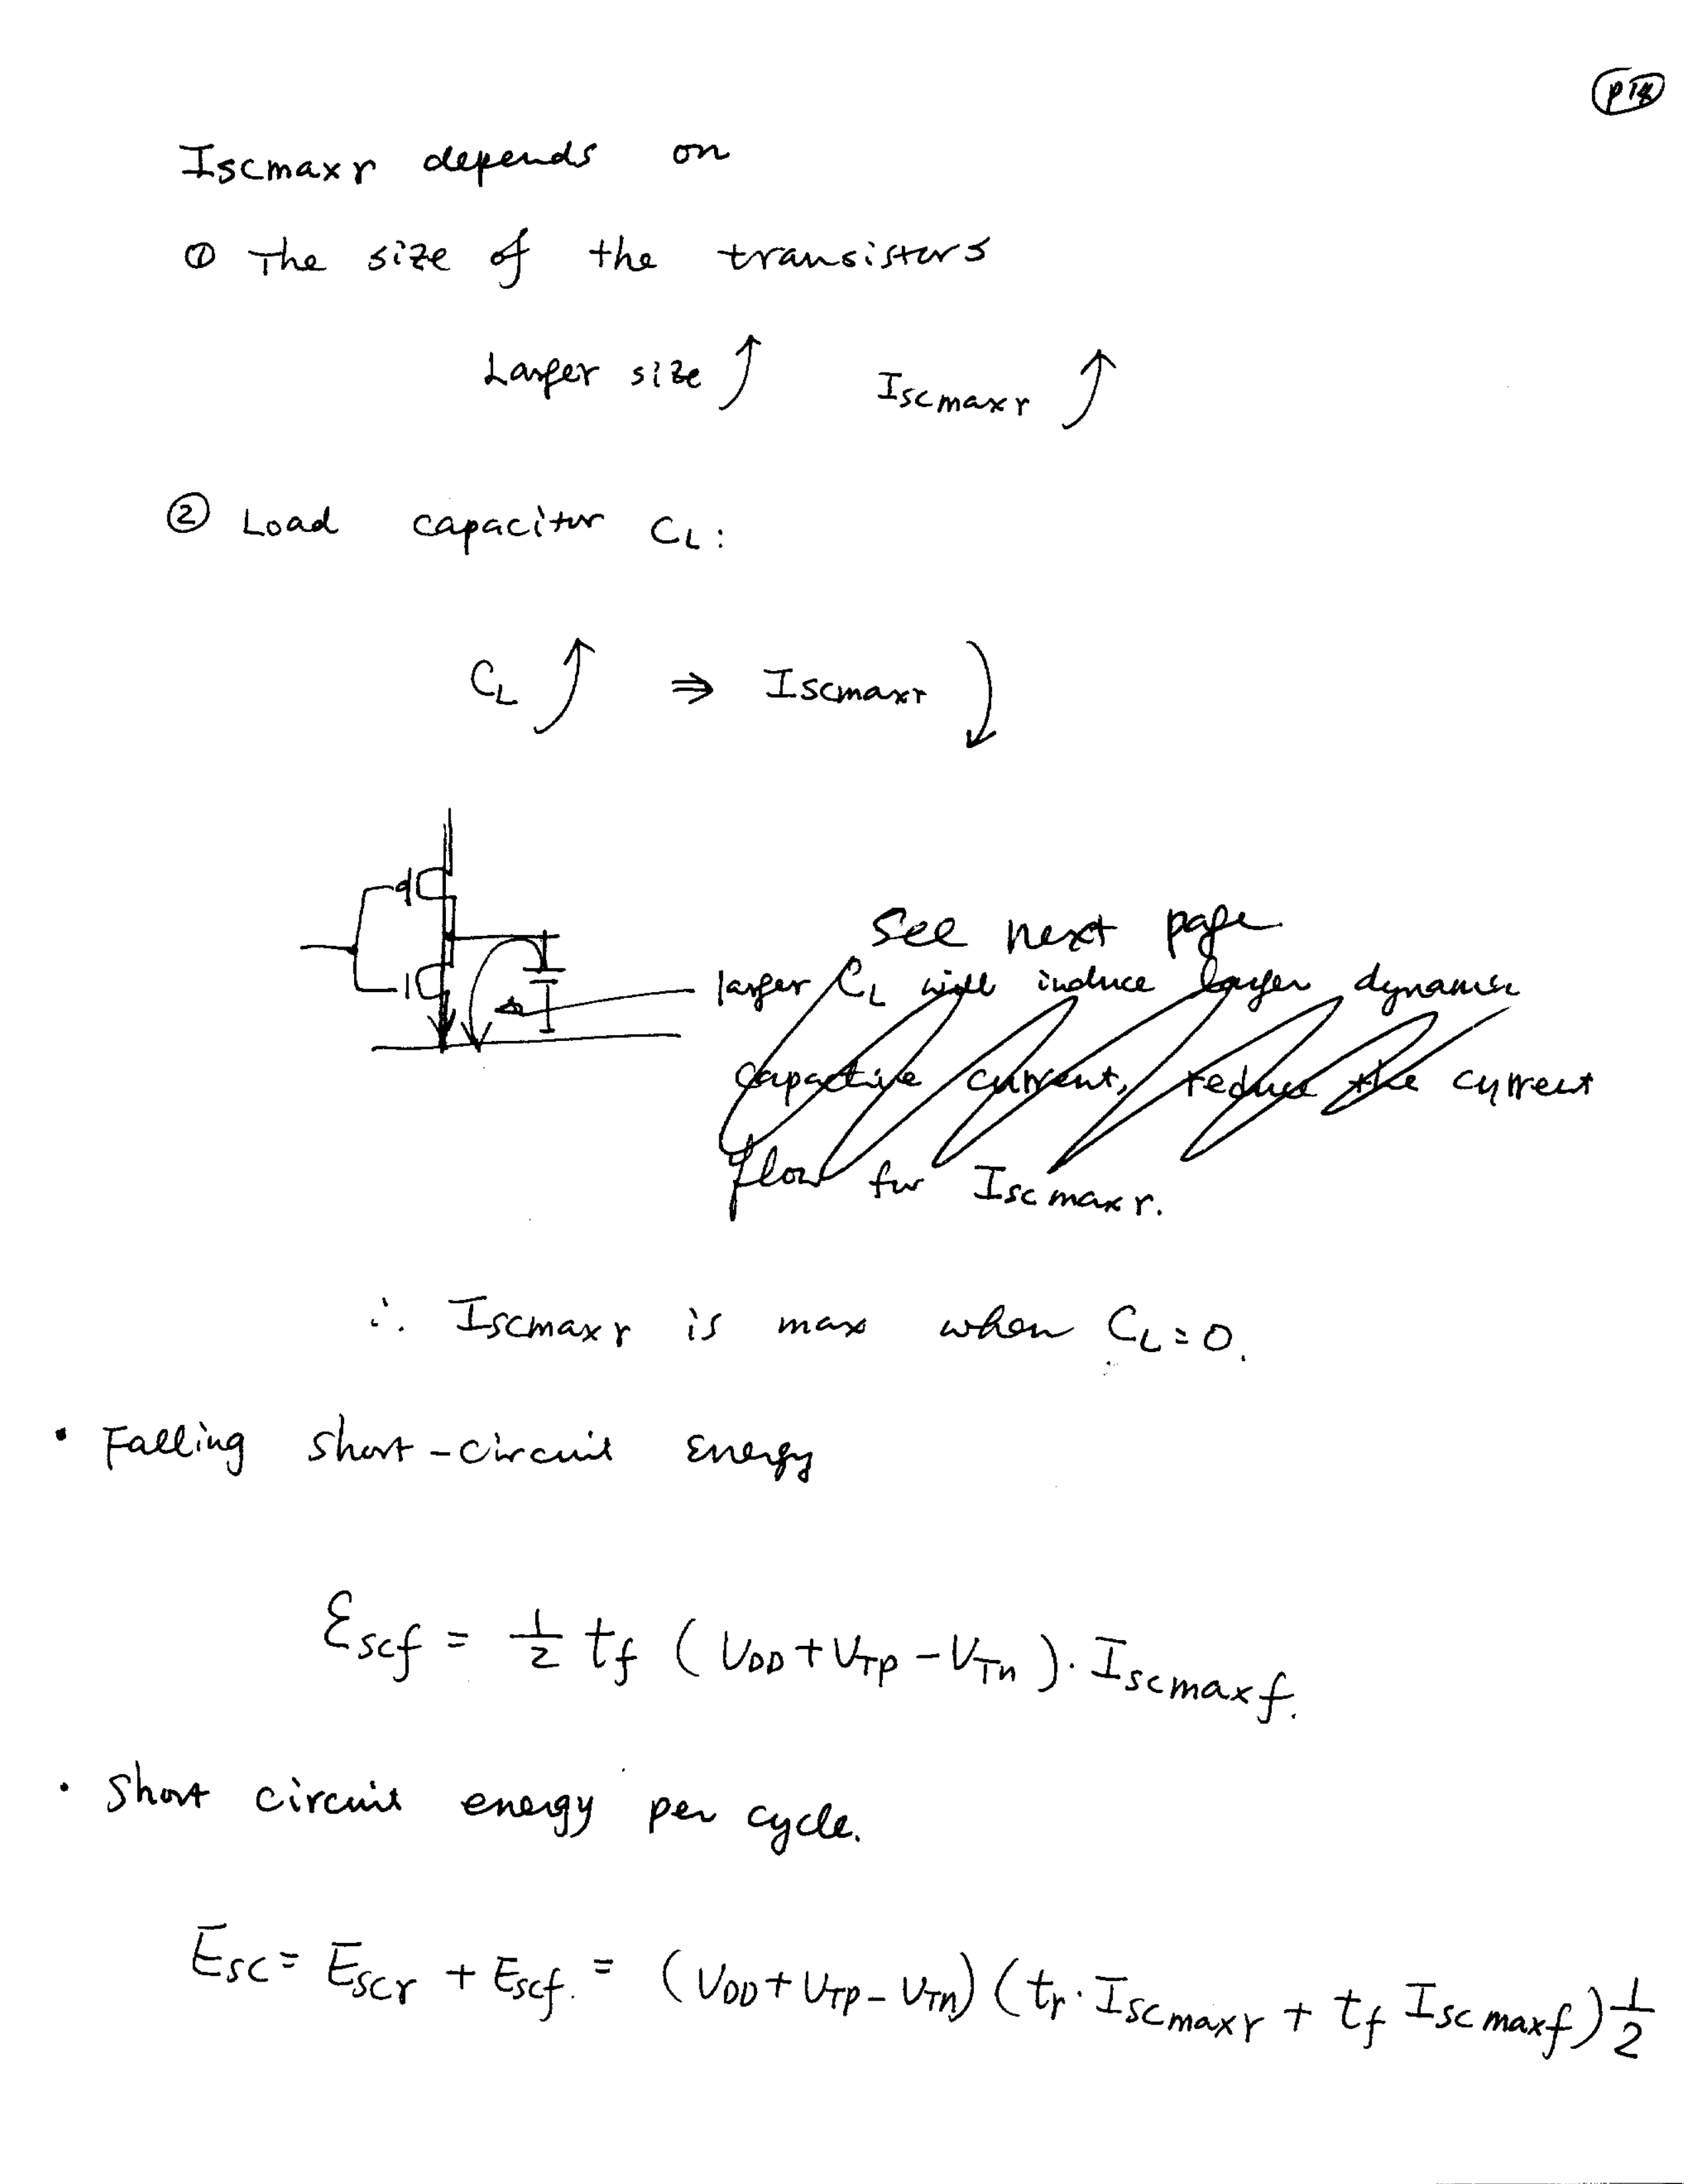 Iscmaxr depends on
① The size of the transistors
Larger size ↑ Iscmaxr ↑
② Load capacitor CL:
CL ↑ ⇒ Iscmaxr ↓
See next page
larger CL will induce larger dynamic
capactive current, reduce the current
flow for Iscmaxr.
∴ Iscmaxr is max when CL = 0.
• Falling short-circuit energy
Escf = 1/2 tf (VDD + VTp - VTn) · Iscmaxf.
• Short circuit energy per cycle.
Esc = Escr + Escf. = (VDD + VTp - VTn) (tr · Iscmaxr + tf Iscmaxf) 1/2